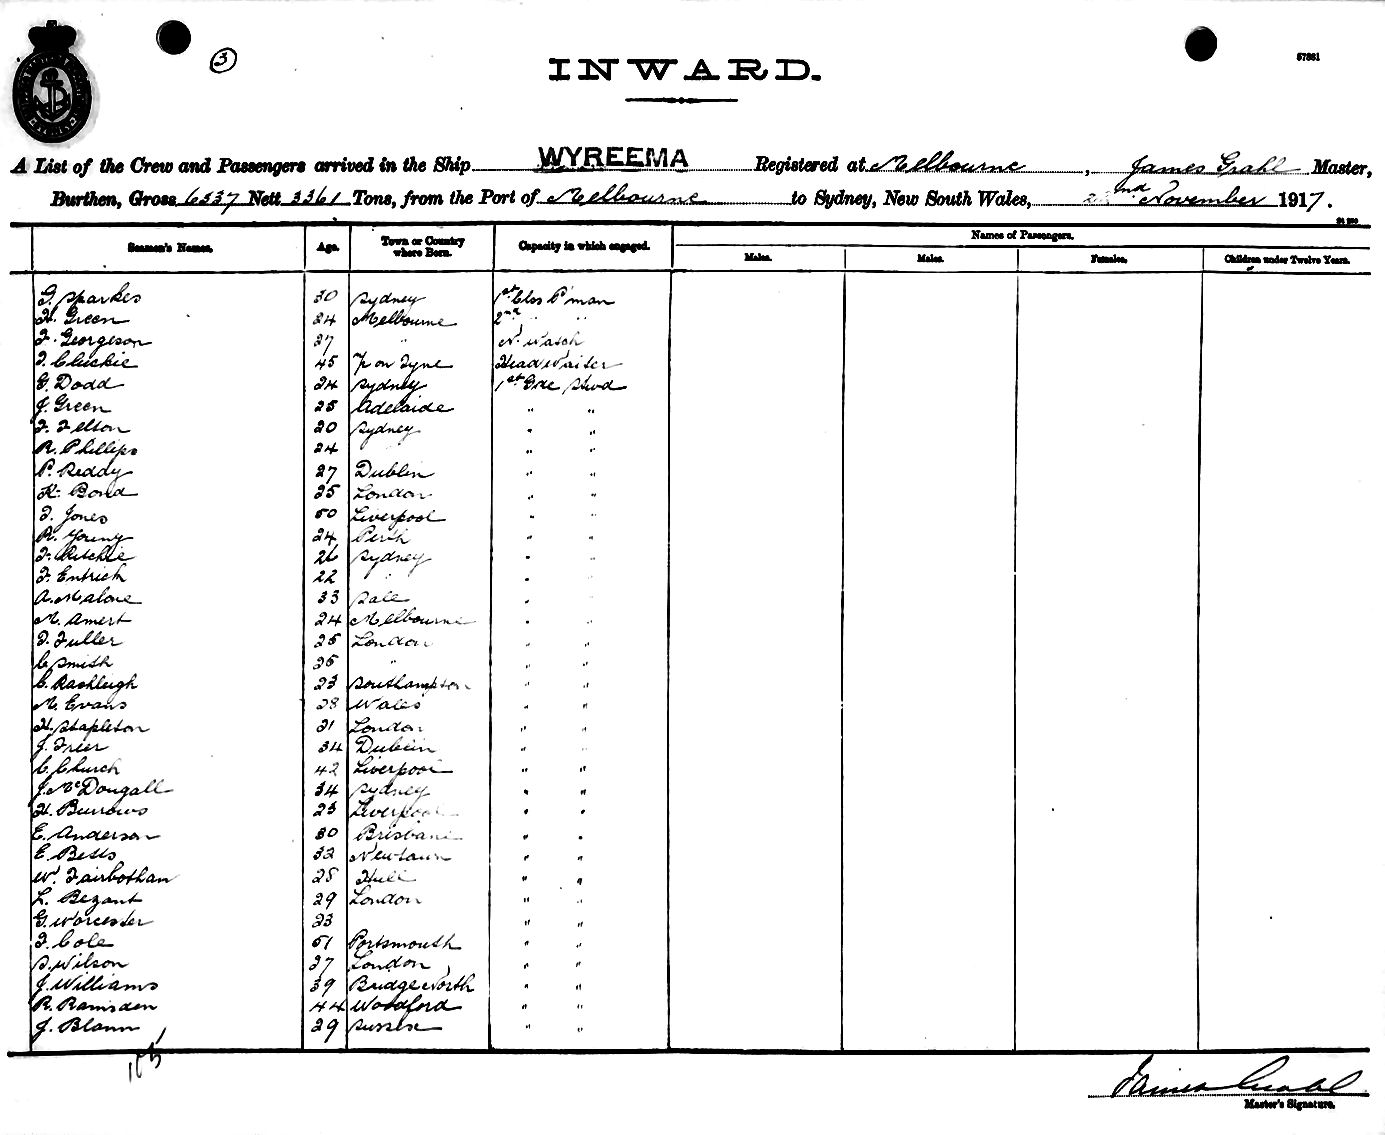 3
INWARD.
57861
A List of the Crew and Passengers arrived in the Ship WYREEMA Registered at Melbourne, James Grahl Master,
Burthen, Gross 6337 Nett 3361 Tons, from the Port of Melbourne to Sydney, New South Wales, 22nd November 1917.
Seamen's Names. Age. Town or Country where Born. Capacity in which engaged. Names of Passengers.
Males. Males. Females. Children under Twelve Years.
G. Sparkes 30 Sydney 1st Clss P'man
H. Green 24 Melbourne 2nd " "
F. Georgeson 27 " N. Watch
T. Cluckie 45 on Tyne Head Waiter
G. Dodd 24 Sydney 1st Gde Stwd
J. Green 25 Adelaide " "
F. Felton 20 Sydney " "
R. Phillips 24 " " "
P. Reddy 27 Dublin " "
K. Bond 25 London " "
T. Jones 50 Liverpool " "
R. Young 24 Perth " "
F. Ritchie 26 Sydney " "
F. Entrich 22 " " "
A. Malone 33 Sale " "
M. Amert 24 Melbourne " "
F. Fuller 25 London " "
C. Smith 25 " " "
C. Rashleigh 23 Southampton " "
M. Evans 28 Wales " "
H. Stapleton 21 London " "
J. Freer 34 Dublin " "
C. Church 42 Liverpool " "
J. McDougall 34 Sydney " "
H. Burrows 23 Liverpool " "
E. Anderson 30 Brisbane " "
E. Betts 32 Newtown " "
W. Fairbothan 25 Hull " "
L. Bezant 29 London " "
G. Worcester 23 " "
F. Cole 51 Portsmouth " "
S. Wilson 27 London " "
J. Williams 39 Bridge North " "
R. Ramsden 44 Woodford " "
J. Blann 29 Sussex " "
105
James Grahl
Master's Signature.